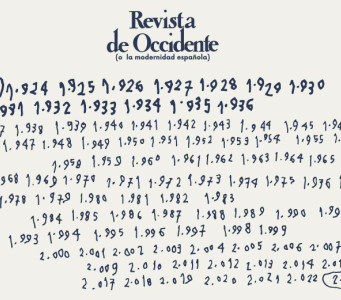 Revista
de Occidente
(o la modernidad española)
1.924 1.925 1.926 1.927 1.928 1.929 1.930
931 1.932 1.933 1.934 1.935 1.936
7 1.938 1.939 1.940 1.941 1.942 1.943 1.944 1.945 1.94
1.947 1.948 1.949 1.950 1.951 1.952 1.953 1.954 1.955 1.
1.958 1.959 1.960 1.961 1.962 1.963 1.964 1.965
968 1.969 1.970 1.971 1.972 1.973 1.974 1.975 1.976 1
1.978 1.979 1.980 1.981 1.982 1.983
1.984 1.985 1.986 1.987 1.988 1.989 1.990 1.99
1.993 1.994 1.995 1.996 1.997 1.998 1.999
2.000 2.001 2.002 2.003 2.004 2.005 2.006 2.007
2.009 2.010 2.011 2.012 2.013 2.014 2.01
2.017 2.018 2.019 2.020 2.021 2.022 2